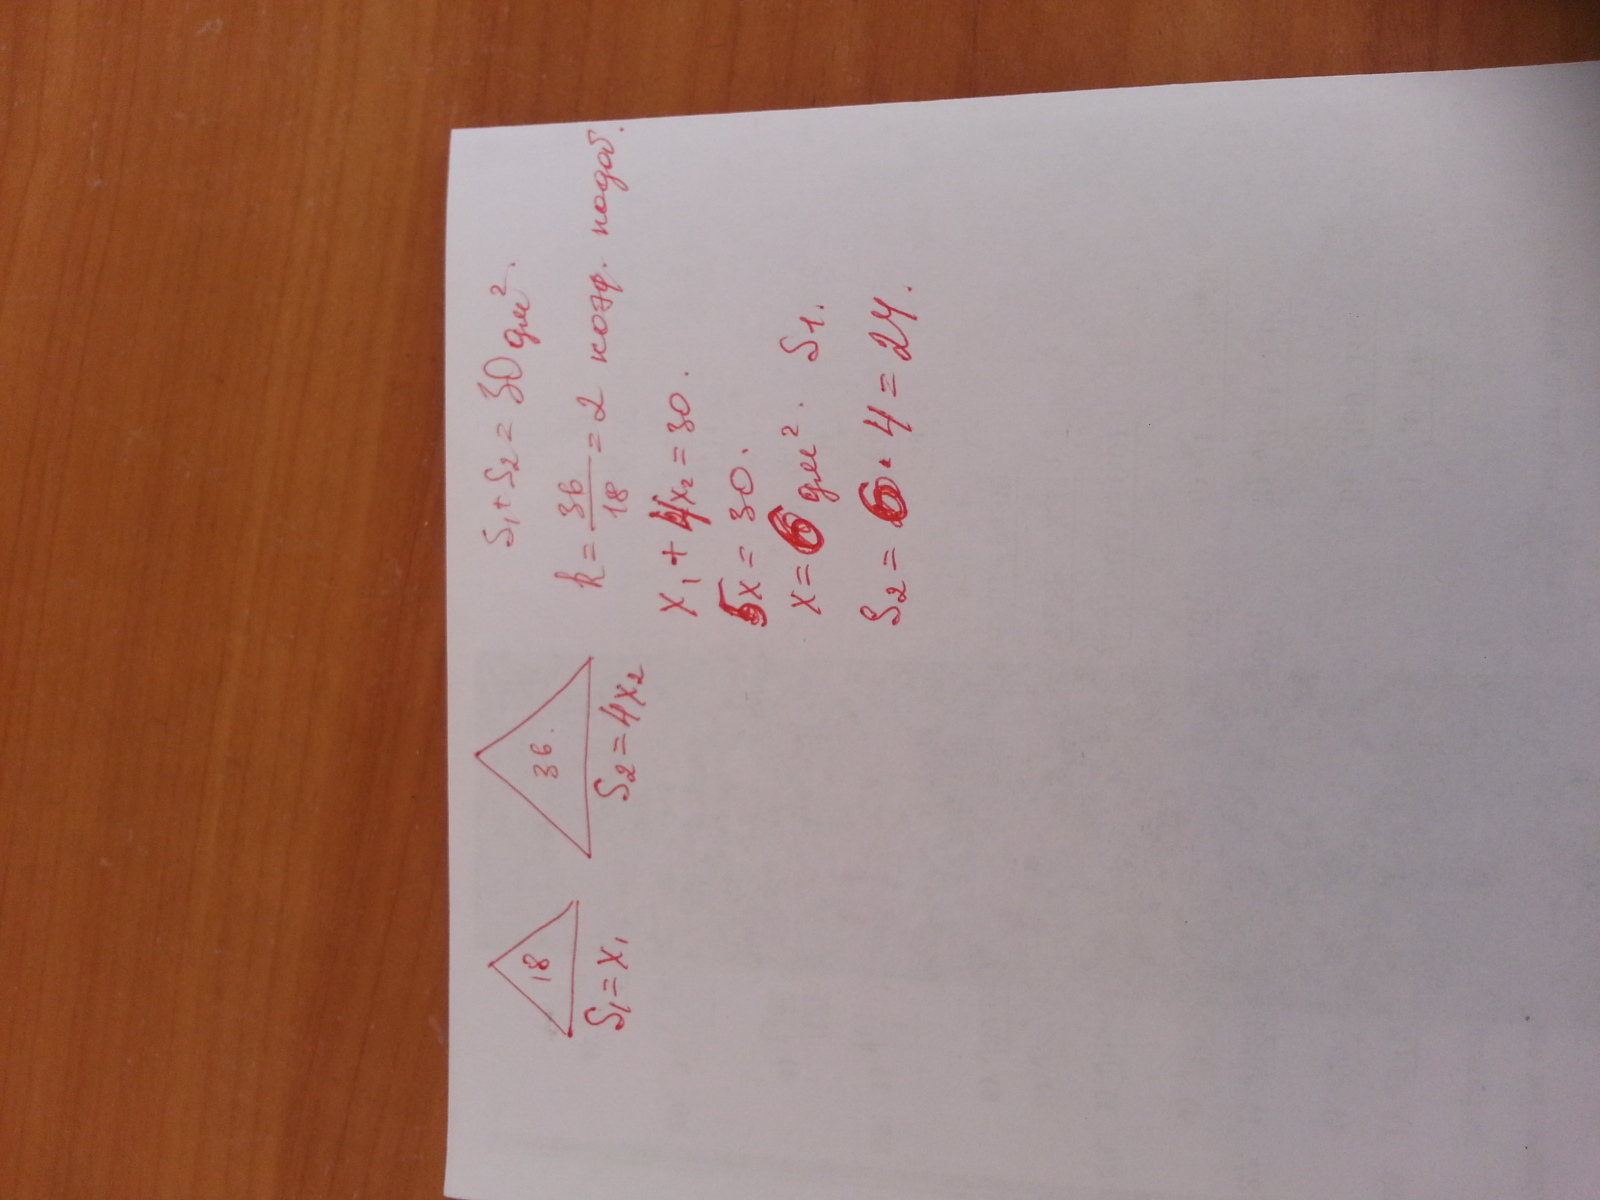 18
36.
S₁ = x₁
S₂ = 4x₂
S₁ + S₂ = 30 дм².
k = 36/18 = 2 коэф. подоб.
x₁ + 4x₂ = 30.
5x = 30.
x = 6 дм². S₁.
S₂ = 6 · 4 = 24.